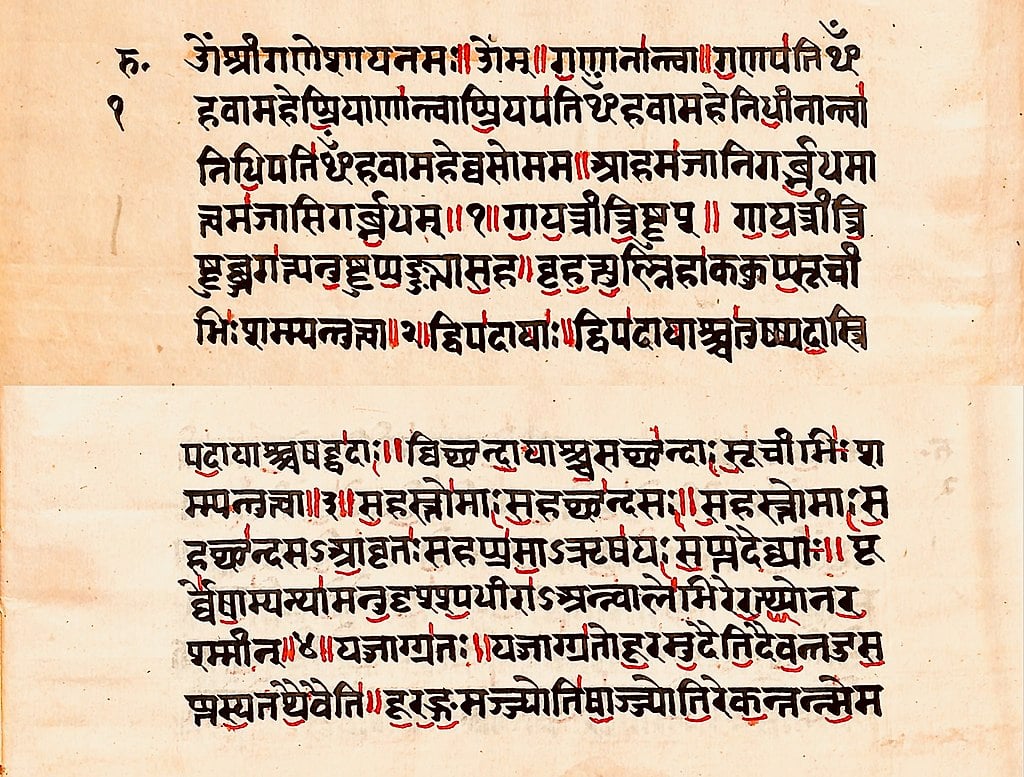 रु. ॐश्रीगणेशायनमः॥ॐम्॥गणानान्त्वा॥गणपतिᳪ
१ हवामहेप्प्रियाणान्त्वाप्प्रियपतिᳪहवामहेनिधीनान्त्वा
निधिपतिᳪहवामहेव्वसोमम॥आहमजानिगर्ब्भधमा
त्त्वमजासिगर्ब्भधम्॥१॥गायत्रीत्रिष्टुप्॥गायत्रीत्रि
ष्टुब्जगत्यनुष्टुप्पङ्क्त्यासह॥बृहत्युष्ण्णिहाककुप्सूची
भिःशम्म्यन्तुत्वा॥२॥द्विपदायाः॥द्विपदायाश्चतुष्पदास्त्रि
पदायाश्चषट्पदाः॥व्विच्छन्दायाश्चसच्छन्दाःसूचीभिःश
म्म्यन्तुत्वा॥३॥सहस्तोमाःसहच्छन्दसः॥सहस्तोमाःस
हच्छन्दसऽआवृतःसहप्प्रमाऽऋषयःसप्तदैव्याः॥पू
र्व्वेषाम्पन्थामनुदृश्यधीराऽअन्वालेभिरेरत्थ्योनर
श्म्मीन्॥४॥यज्जाग्ग्रतः॥यज्जाग्ग्रतोदूरमुदैतिदैवन्तदुसु
प्तस्यतथैवैति॥दूरङ्गमञ्ज्योतिषाञ्ज्योतिरेकन्तन्न्मेम